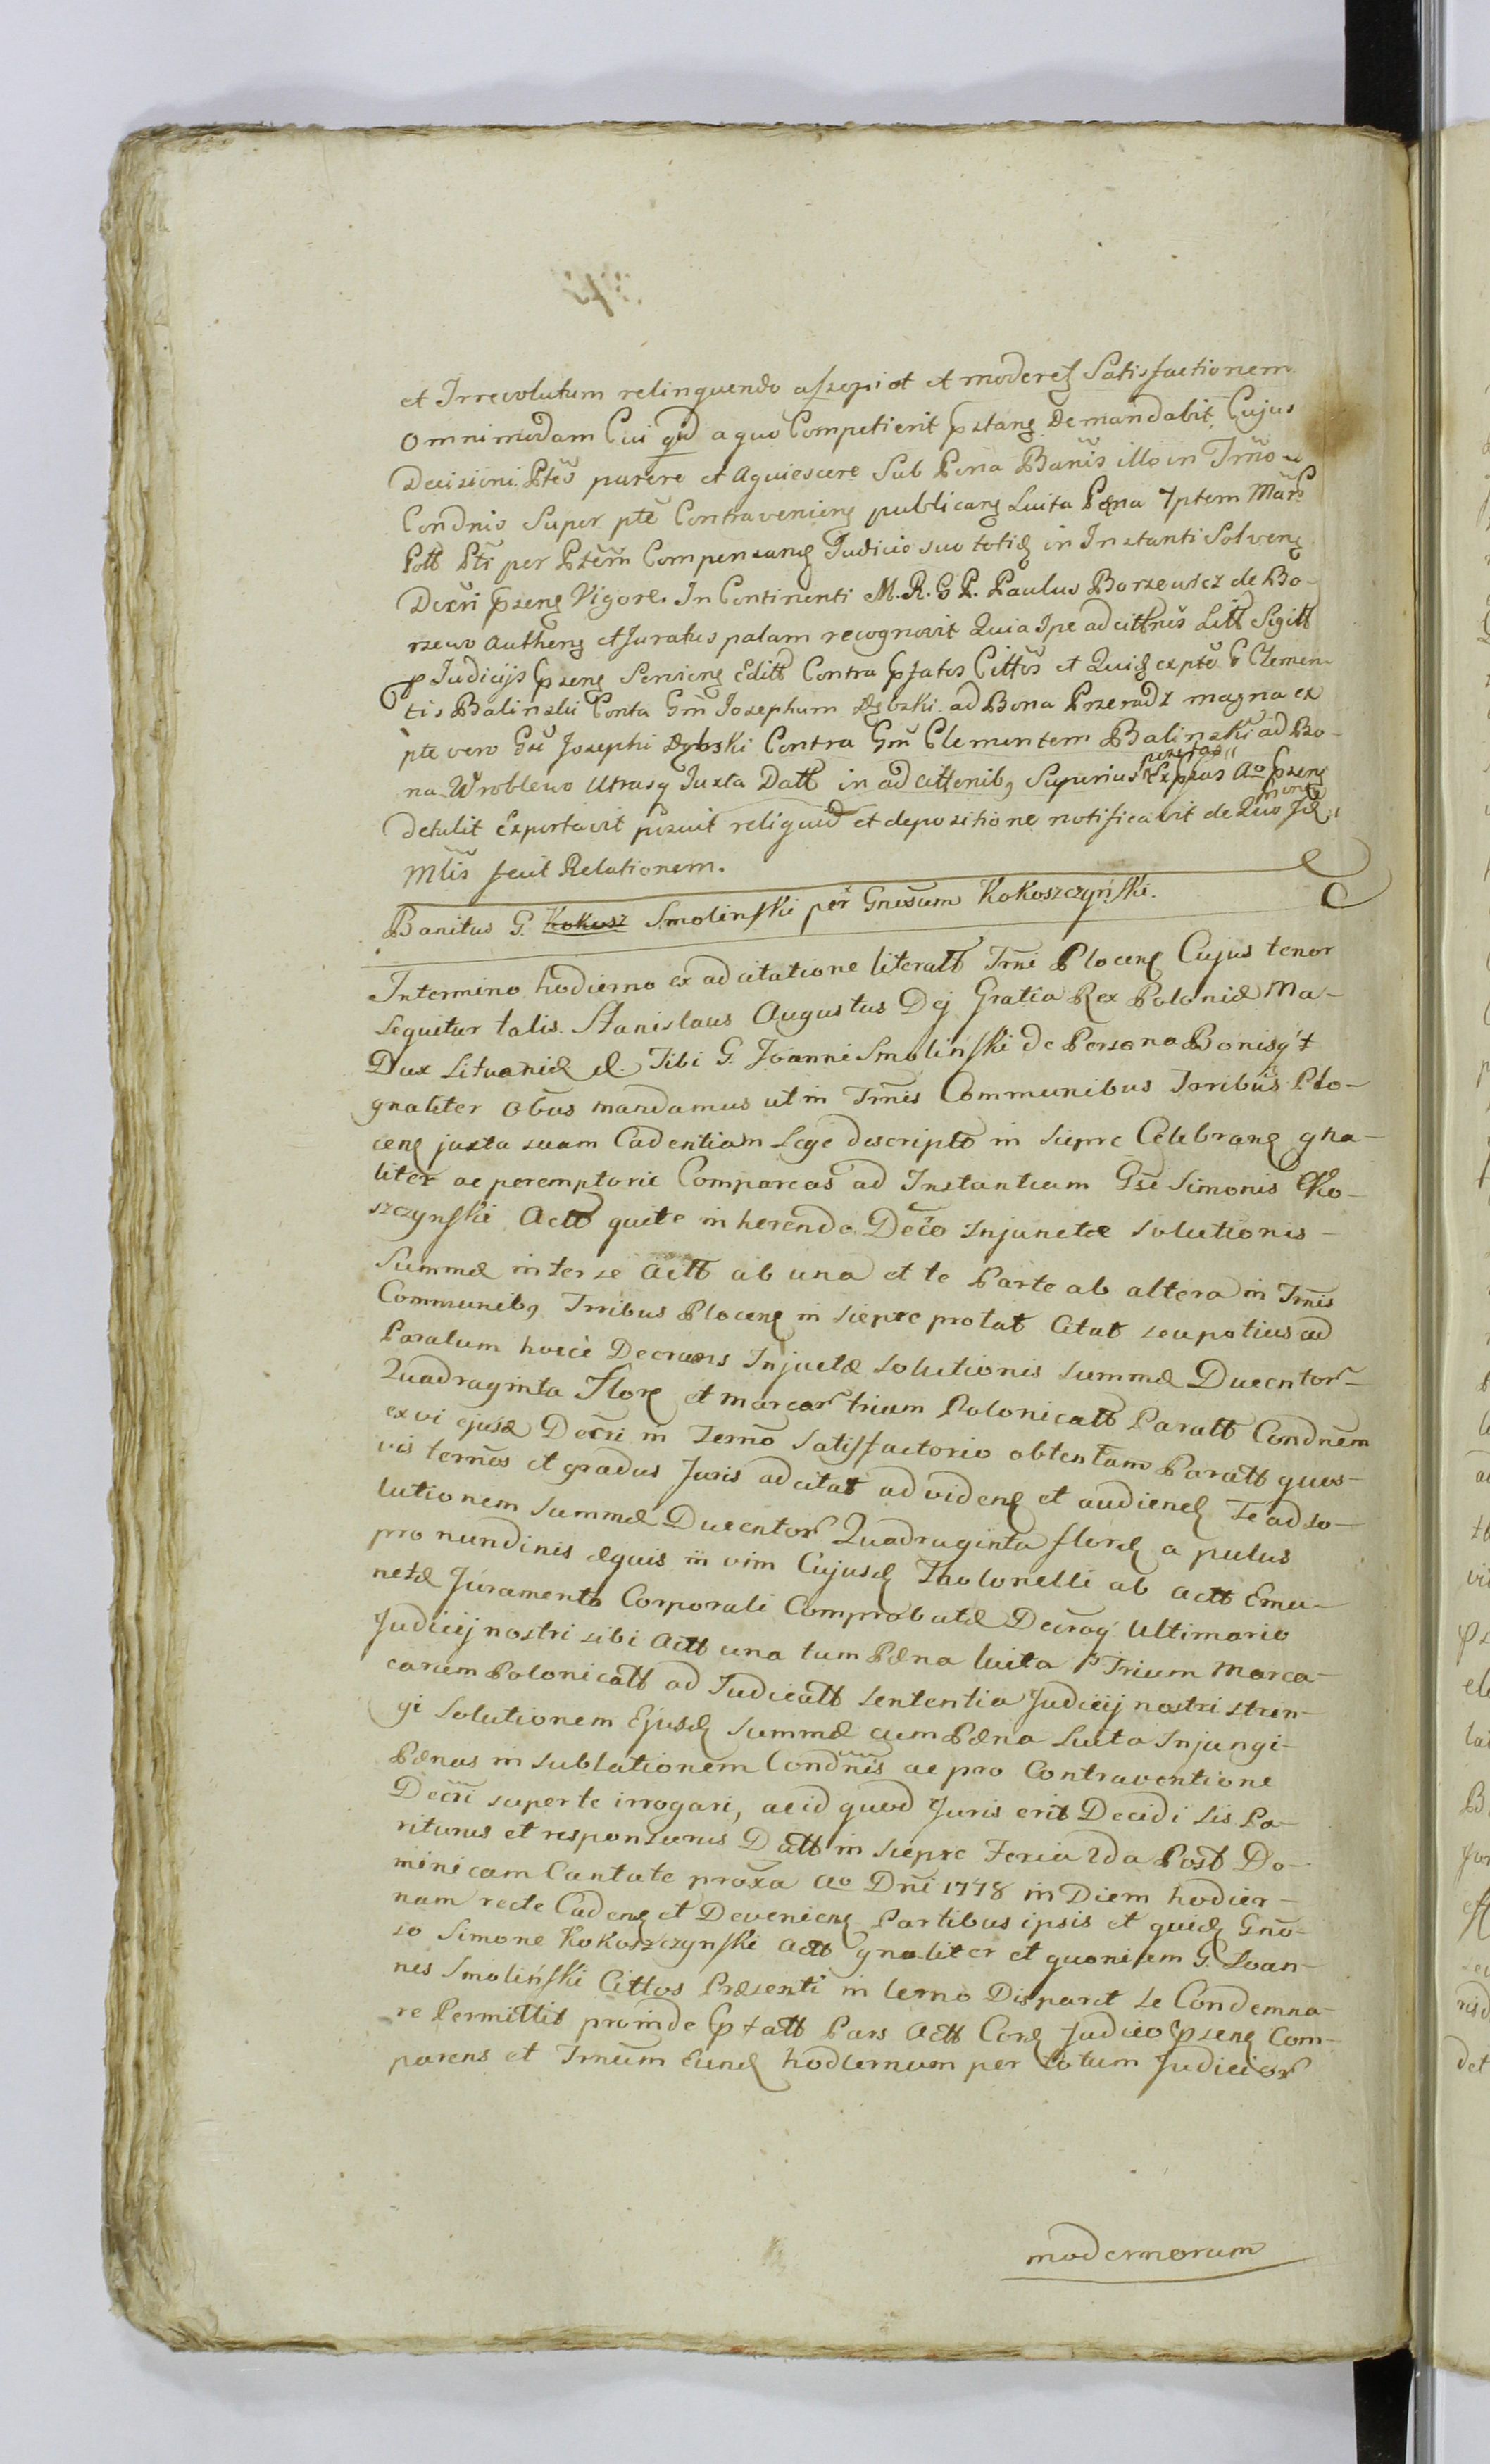 et Irrevolutum relinquendo assopiet et moderetʒ Satisfactionem
omnimodam Cui qd a quo Competierit pstang Demandabit, Cujus
Decisioni Ptes parere et Aquiescere Sub Pena Banis illo in Trno
Condnis Super pte Contravenieng publicang Luita Pæna 7ptem Marc
Poll Pti per Ptem Compensang Judicio suo totiʒ in Instanti Solveng
Decri pseng Vigore. In Continenti M. R. G P. Paulus Borzewicz de Bo-
rzewo Autheng et Juratus palam recognovit Quia Ipe adcittnes Litt Sigitt
p Judicijs pseng Servieng Editt Contra pfatos Cittos et Quiʒ ex pte G Clemen-
tis Balinski Conta Gm Josephum Dębski ad Bona Przeradz magna ex
pte vero Gsi Josephi Dębski Contra Gm Clementem Balinski ad Bo-
na Wroblewo Utrasq Juxta Datt in adcittonibʒ Superius Expsas Ao pseng
positas
detulit Exportavit posuit reliquid et depositione notificavit de Quo Jd
mone
Mlis fecit Relationem.
Banitus G. Kokosz Smolinski per Gnesum Kokoszczyński.
In termino hodierno ex adcitatione literatt Trni Ploceng Cujus tenor
Sequitur talis. Stanislaus Augustus Dej Gratia Rex Poloniæ Ma-
Dux Lituaniæ &. Tibi G. Joanni Smoliński de Persona Bonisq't
gnaliter obus mandamus ut in Trnis Communibus Trribus Plo-
ceng juxta suam Cadentiam Lege descripto in Sieprc Celebrang gna-
liter ac peremptorie Compareas ad Instantiam Gsi Simonis Ko-
szczynski Actt qui te inherendo Deco Injunctæ Solutionis
Summæ inter se Actt ab una et te Parte ab altera in Trnis
Communibʒ Trribus Ploceng in Sieprc prolat Citat seu potius ad
Paratum hocce Decrum Injuctæ Solutionis Summæ Ducentor
Quadraginta Flore et marcar trium Polonicatt Paratt Condnem
ex vi ejusd Decri in Termo Satisfactorio obtentam Paratt quos-
vis termos et gradus Juris adcitat ad videng et audieng Te ad so-
lutionem Summæ Ducentor Quadraginta floreʒ a pulus
pro nundinis equis in vim Cujusʒ Thelonelli ab Actt Emu-
netæ Juramento Corporali Comprobatæ Decroq Ultimario
Judicij nostri sibi Actt una tum Pæna luita Trium Marca-
carum Polonicatt ad Judicatt Sententia Judicij nostri strin-
gi Solutionem Ejusʒ Summæ cum Pæna Luita Injungi
Pænas in sublationem Condnis ac pro Contraventione
Decri super te irrogari, ac id quod Juris erit Decidi sis Pa-
riturus et responsurus Datt in Sieprc Feria 2da Post Do-
minicam Cantate proxa Ao Dni 1778 in Diem hodier-
num recte Cadeng et Devenieng Partibus ipsis et quiʒ Gno-
so Simone Kokoszczynski Actt gnaliter et quonisem G. Joan-
nes Smoliński Cittos Præsenti in Termo Disparet Se Condemna-
re Permittit proinde pfatt Pars Actt Corʒ Judicio pseng Com-
parens et Trnum Eunʒ hodiernum per totum Judicior
modernorum